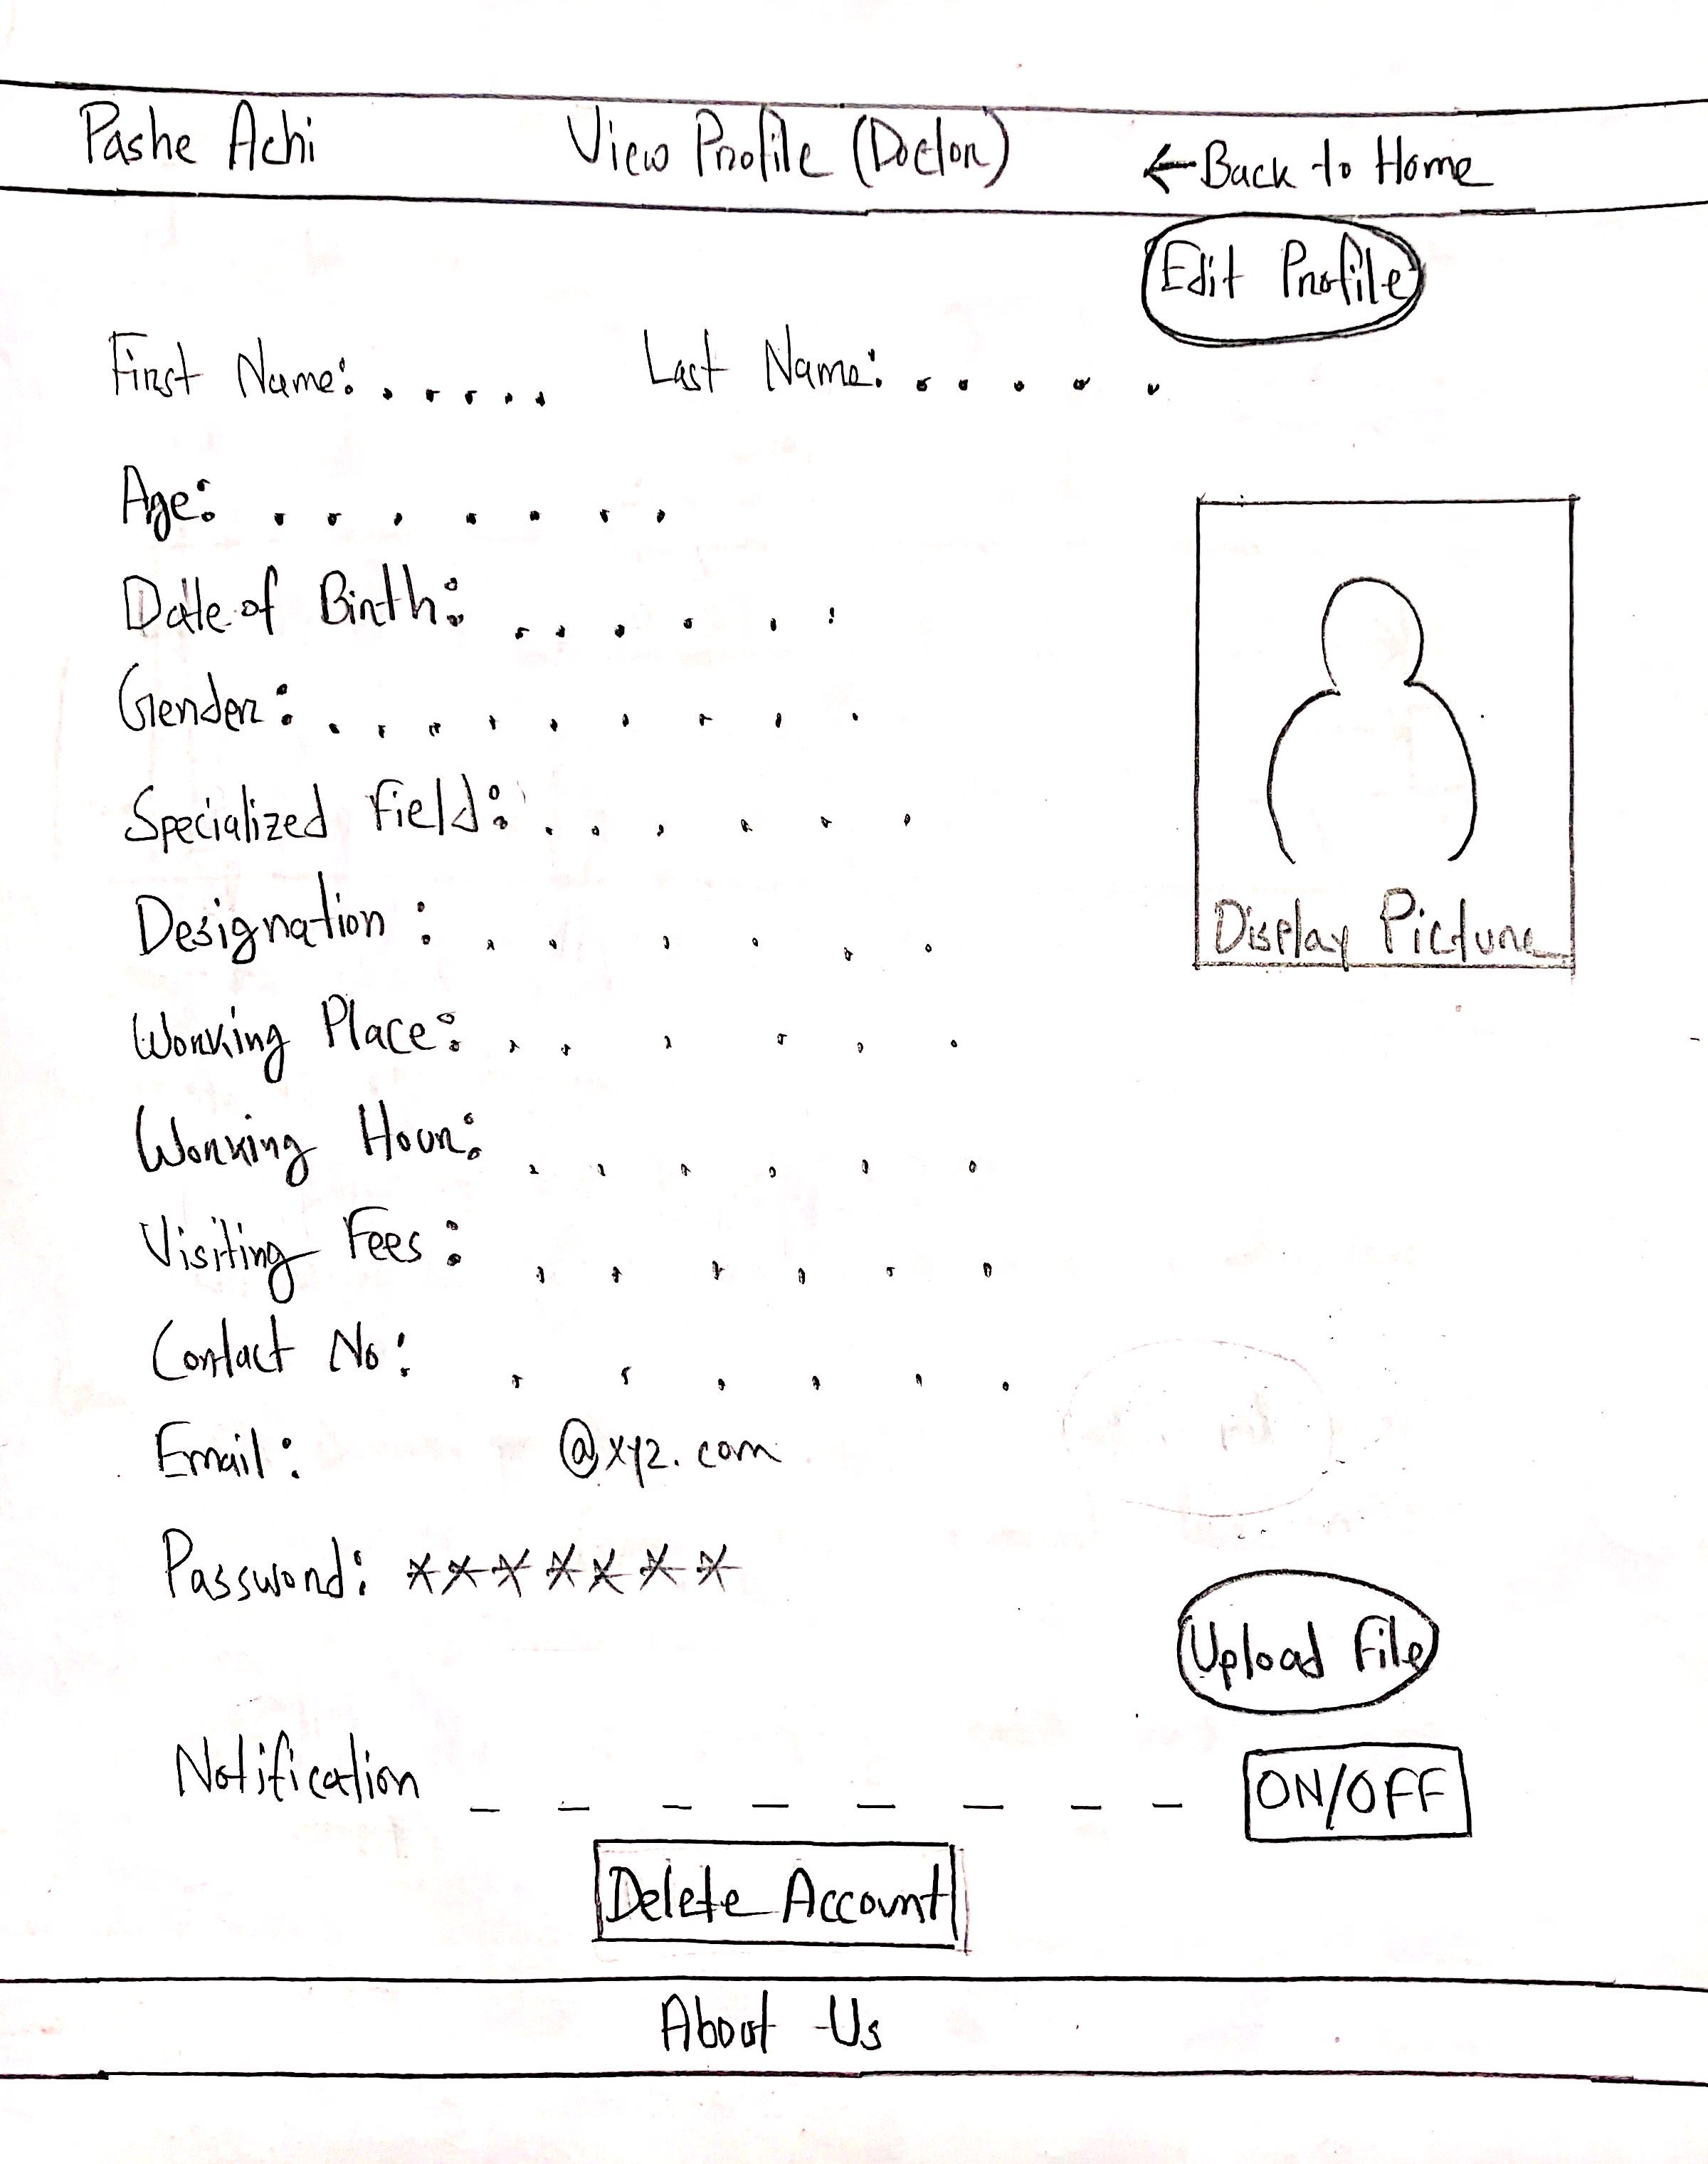 Pashe Achi View Profile (Doctor) ← Back to Home
Edit Profile
First Name: . . . . . Last Name: . . . . .
Age: . . . . . . .
Date of Birth: . . . . . .
Gender: . . . . . . . . .
Specialized Field: . . . . . .
Designation : . . . . . .
Working Place: . . . . . .
Working Hour: . . . . . .
Visiting Fees : . . . . . .
Contact No: . . . . . .
Email: @xyz.com
Password: *******
Upload File
Notification _ _ _ _ _ _ _ _ ON/OFF
Delete Account
About Us